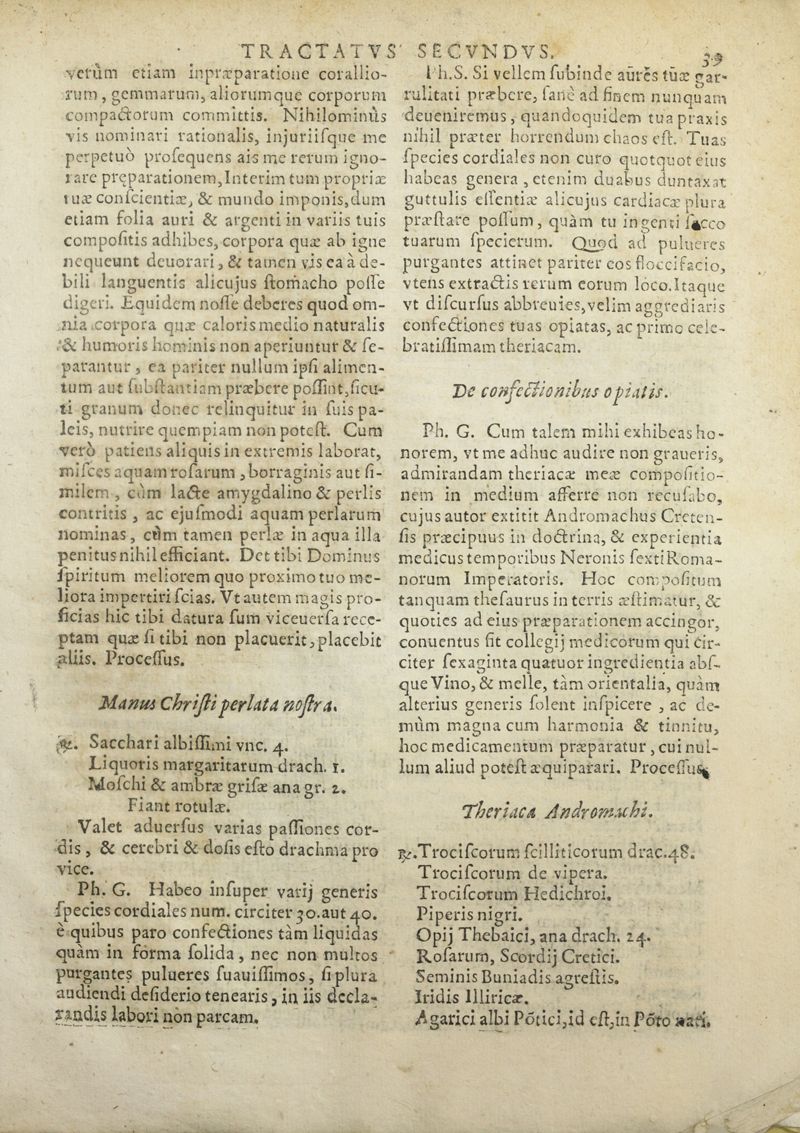 TRACTATVS SECVNDVS. 39
verùm etiam inpræparatione corallio-
rum, gemmarum, aliorumque corporum
compactorum committis. Nihilominùs
vis nominari rationalis, injuriisque me
perpetuò prosequens ais me rerum igno-
rare preparationem, Interim tum propriæ
tuæ conscientiæ, & mundo imponis, dum
etiam folia auri & argenti in variis tuis
compositis adhibes, corpora quæ ab igne
nequeunt deuorari, & tamen vis ea à de-
bili languentis alicujus stomacho posse
digeri. Equidem nosse deberes quod om-
nia corpora quæ caloris medio naturalis
& humoris hominis non aperiuntur & se-
parantur, ea pariter nullum ipsi alimen-
tum aut substantiam præbere possint, sicu-
ti granum donec relinquitur in suis pa-
leis, nutrire quempiam non potest. Cum
verò patiens aliquis in extremis laborat,
misces aquam rosarum, borraginis aut si-
milem, cùm lacte amygdalino & perlis
contritis, ac ejusmodi aquam perlarum
nominas, cùm tamen perlæ in aqua illa
penitus nihil efficiant. Det tibi Dominus
spiritum meliorem quo proximo tuo me-
liora impertiri scias. Vt autem magis pro-
ficias hic tibi datura sum viceuersa rece-
ptam quæ si tibi non placuerit, placebit
aliis. Processus.
Manus Christi perlata nostra.
℞. Sacchari albissimi vnc. 4.
Liquoris margaritarum drach. 1.
Moschi & ambræ grisæ ana gr. 2.
Fiant rotulæ.
Valet aduersus varias passiones cor-
dis, & cerebri & dosis esto drachma pro
vice.
Ph. G. Habeo insuper varij generis
species cordiales num. circiter 30. aut 40.
è quibus paro confectiones tàm liquidas
quàm in forma solida, nec non multos
purgantes pulueres suauissimos, si plura
audiendi desiderio tenearis, in iis decla-
randis labori non parcam.
Ph. S. Si vellem subinde aures tuæ gar-
rulitati præbere, sanè ad finem nunquam
deueniremus, quandoquidem tua praxis
nihil præter horrendum chaos est. Tuas
species cordiales non curo quotquot eius
habeas genera, etenim duabus duntaxat
guttulis essentiæ alicujus cardiacæ plura
præstare possum, quàm tu ingenti sacco
tuarum specierum. Quod ad pulueres
purgantes attinet pariter eos floccifacio,
vtens extractis rerum eorum loco. Itaque
vt discursus abbreuies, velim aggrediaris
confectiones tuas opiatas, ac primo cele-
bratissimam theriacam.
De confectionibus opiatis.
Ph. G. Cum talem mihi exhibeas ho-
norem, vt me adhuc audire non graueris,
admirandam theriacæ meæ compositio-
nem in medium afferre non recusabo,
cujus autor extitit Andromachus Creten-
sis præcipuus in doctrina, & experientia
medicus temporibus Neronis sexti Roma-
norum Imperatoris. Hoc compositum
tanquam thesaurus in terris æstimatur, &
quoties ad eius præparationem accingor,
conuentus fit collegij medicorum qui cir-
citer sexaginta quatuor ingredientia abs-
que Vino, & melle, tàm orientalia, quàm
alterius generis solent inspicere, ac de-
mùm magna cum harmonia & tinnitu,
hoc medicamentum præparatur, cui nul-
lum aliud potest æquiparari. Processus.
Theriaca Andromachi.
℞. Trociscorum scilliticorum drac. 48.
Trociscorum de vipera.
Trociscorum Hedichroi.
Piperis nigri.
Opij Thebaici, ana drach. 24.
Rosarum, Scordij Cretici.
Seminis Buniadis agrestis.
Iridis Illiricæ.
Agarici albi Põtici, id est, in Põto nati.